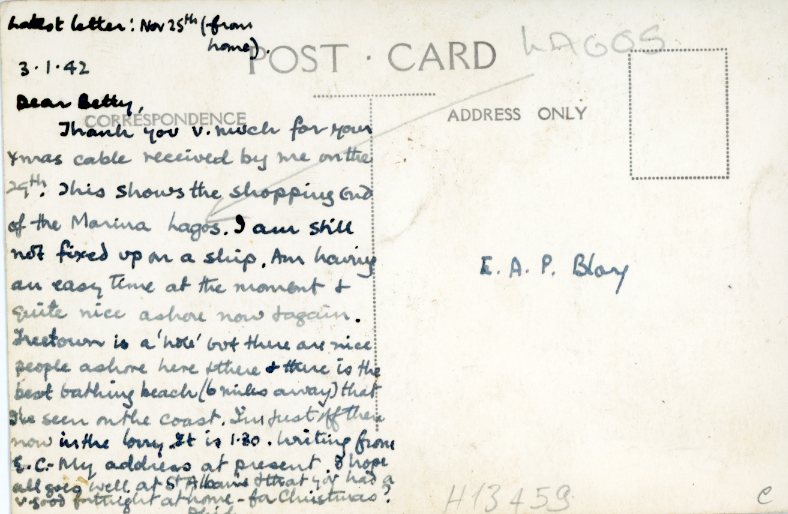 Latest letter: Nov 25th (from
home).
3.1.42
POST CARD
LAGOS
Dear Betty,
CORRESPONDENCE
ADDRESS ONLY
Thank you v. much for your
Xmas cable received by me on the
29th. This shows the shopping end
of the Marina Lagos. I am still
not fixed up on a ship. Am having
an easy time at the moment &
quite nice ashore now & again.
Freetown is a 'hole' but there are nice
people ashore here & there & there is the
best bathing beach (6 miles away) that
I've seen on the coast. I'm just off there
now in the lorry. It is 1.30. Writing from
E.C. - My address at present. I hope
all goes well at St Albans & that you had a
v. good fortnight at home - for Christmas?
E. A. P. Blay
H13459
C